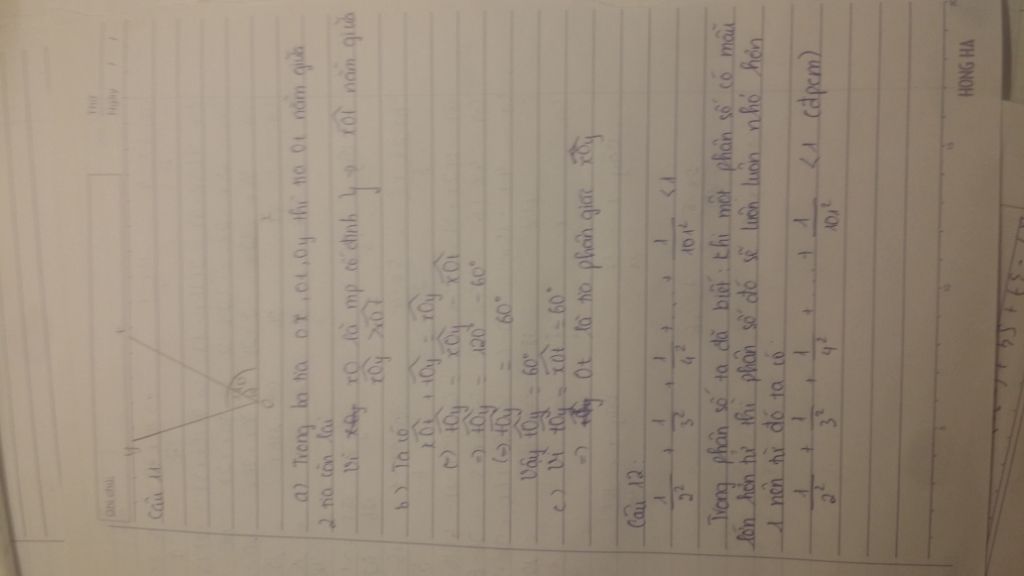 Thứ
Ngày
Câu 11:
y
t
x
O
a) Trong ba tia ox, ot, oy thì tia ot nằm giữa
2 tia còn lại
Vì xO là mp cố định xOt nằm giữa
xOy > xOt
b) Ta có
xOt + tOy = xOy
(=) tOy = xOy - xOt
=) tOy = 120° - 60°
(=) tOy = 60°
Vậy tOy = 60°
c) Vì tOy = xOt = 60°
=) Ot là tia phân giác xOy
Câu 12:
1/2² + 1/3² + 1/4² + ... + 1/101² < 1
Trong phân số ta đã biết: thì một phân số có mẫu
lớn hơn tử thì phân số đó sẽ luôn luôn nhỏ hơn
1 nên từ đó ta có
1/2² + 1/3² + 1/4² + ... + 1/101² < 1 (đpcm)
HONG HA